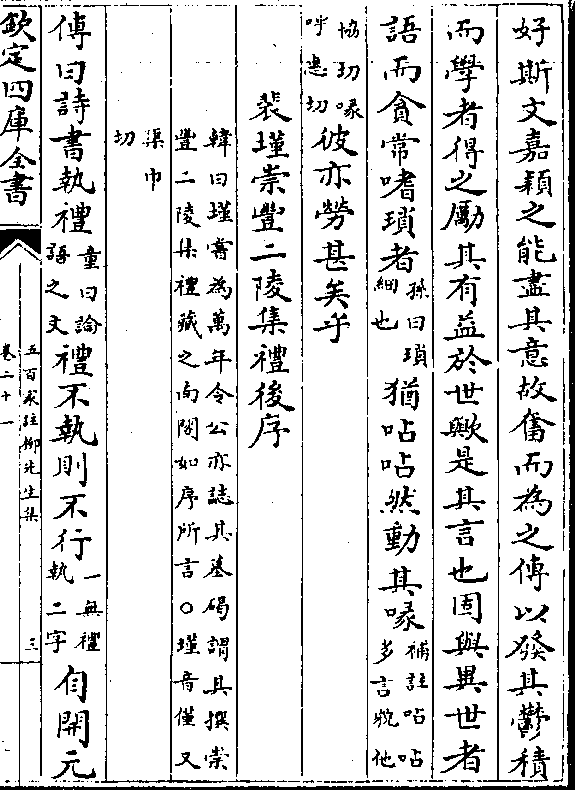 好斯文嘉穎之能盡其意故奮而為之傳以發其鬱積
而學者得之勵其有益於世歟是其言也固與異世者
語而貪常嗜瑣者
孫曰瑣
細也
猶呫呫然動其喙
補註呫呫
多言貌他
協切喙
呼惠切
彼亦勞甚矣乎
裴瑾崇豐二陵集禮後序
韓曰瑾嘗為萬年令公亦誌其墓碣謂其撰崇
豐二陵集禮藏之南閣如序所言○瑾音僅又
渠巾
切
傳曰詩書執禮
童曰論
語之文
禮不執則不行
一無禮
執二字
自開元
欽定四庫全書
五百家註柳先生集
卷二十一
三